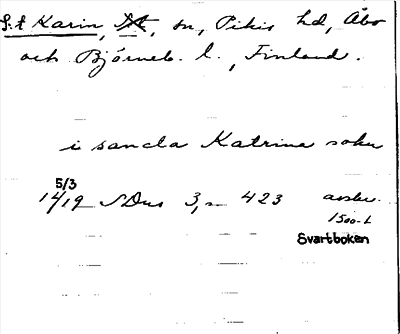 S:t Karin, sn, Pikis hd, Åbo
och Björneb. l., Finland.
i sancta Katrina sokn
5/3
1419 SDns 3, s 423 avskr.
1500-t
Svartboken